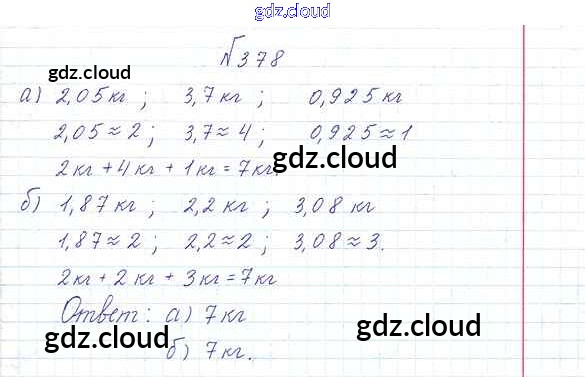 gdz.cloud
№378
gdz.cloud
а) 2,05 кг ; 3,7 кг ; 0,925 кг
2,05 ≈ 2 ; 3,7 ≈ 4 ; 0,925 ≈ 1
gdz.cloud
2 кг + 4 кг + 1 кг = 7 кг.
б) 1,87 кг ; 2,2 кг ; 3,08 кг
gdz.cloud
1,87 ≈ 2 ; 2,2 ≈ 2 ; 3,08 ≈ 3.
2 кг + 2 кг + 3 кг = 7 кг
Ответ: а) 7 кг
gdz.cloud
gdz.cloud
б) 7 кг.